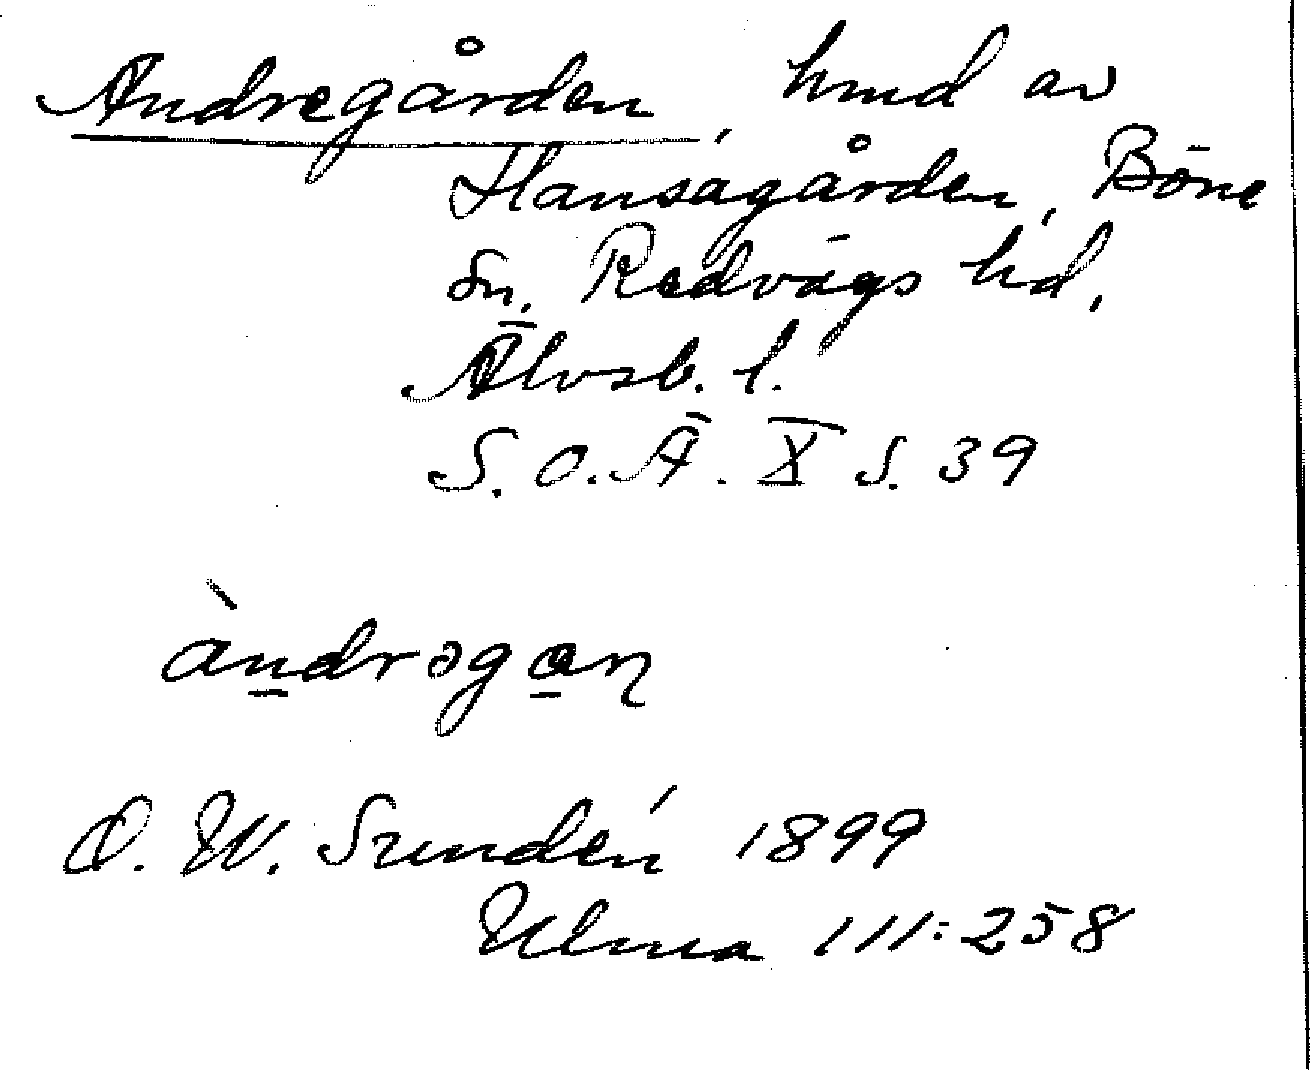 Andregården, hmd av
Hansagården, Böne
sn. Redvägs hd,
Älvsb. l.
S.O.Ä. X s. 39
àndrəgan
O. W. Sundén 1899
Ulma 111:258